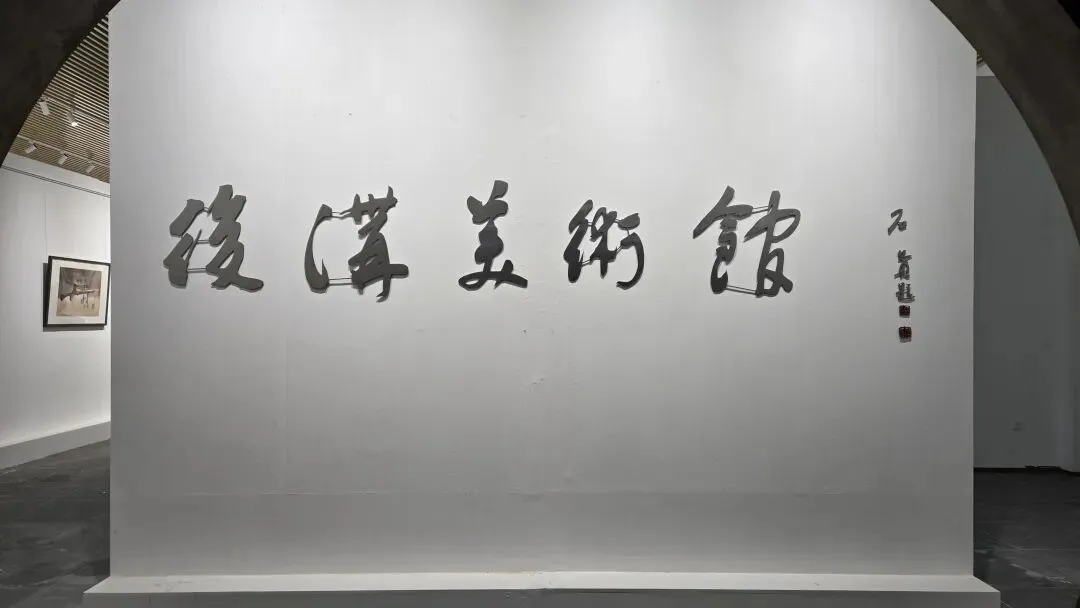 後溝美術館
石
題